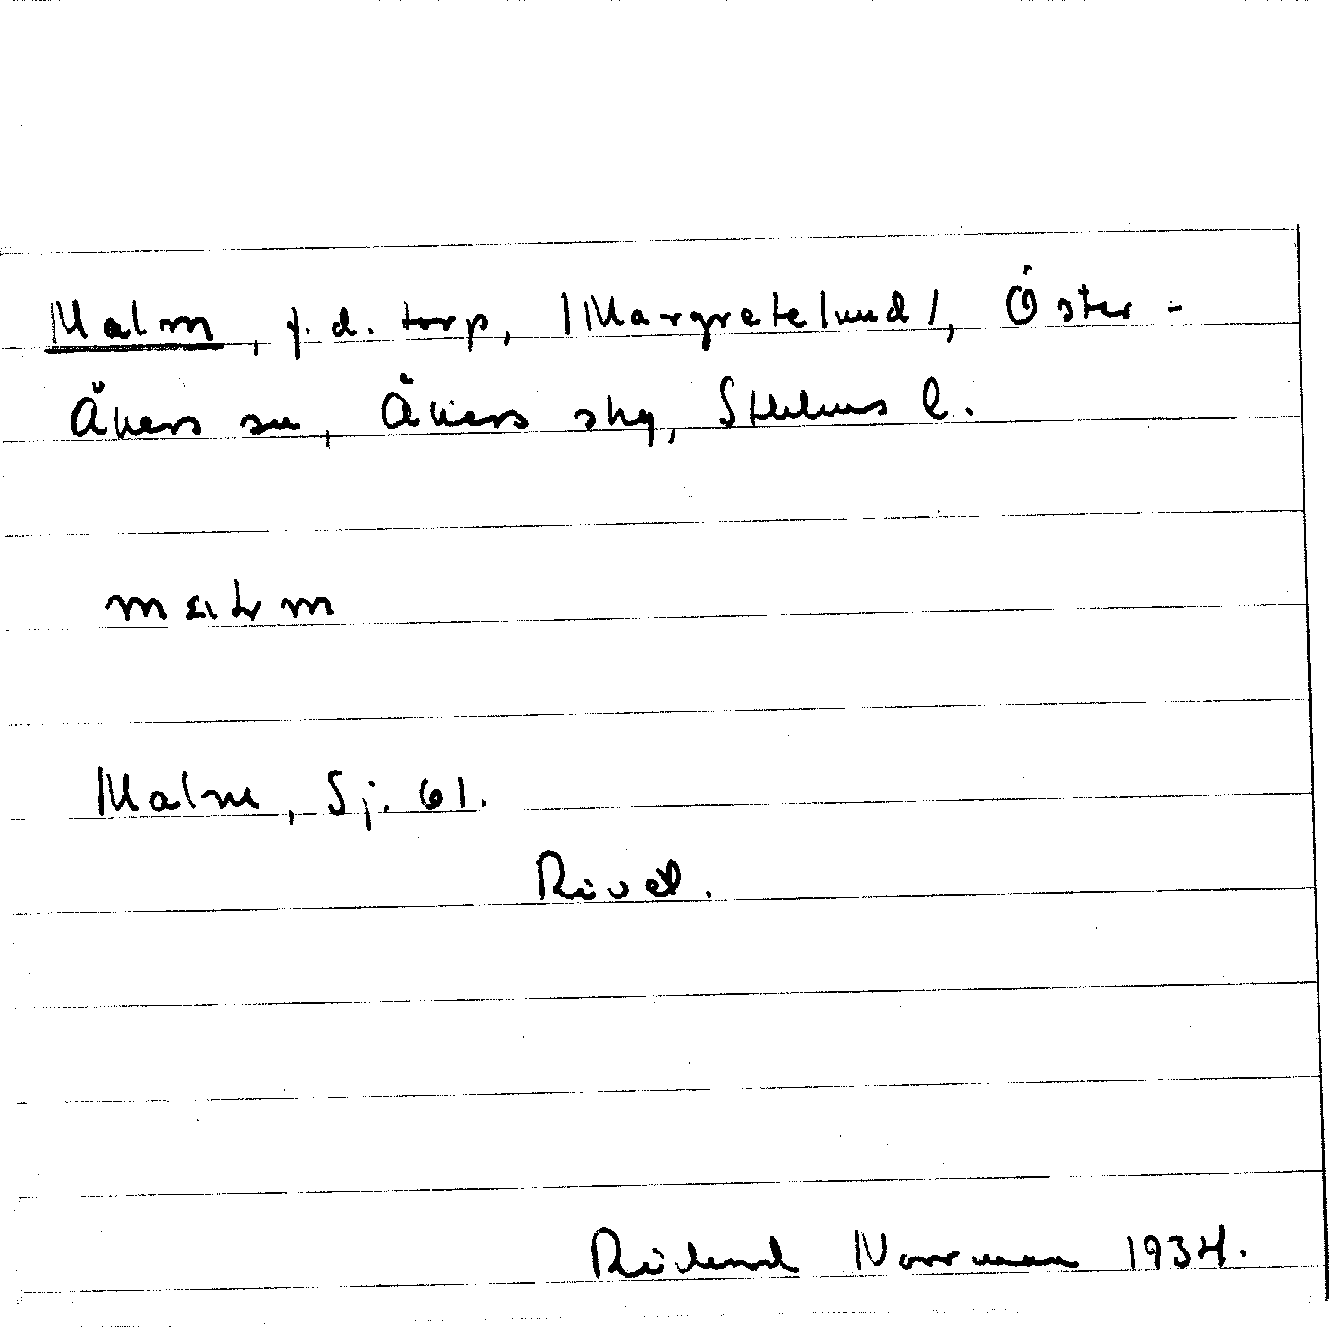 Malm, f.d. torp, /Margretelund/, Öster-
Åkers sn, Åkers skg, Sthlms l.
Malm, Sj. 61.
Rivet.
Rickard Norrman 1934.